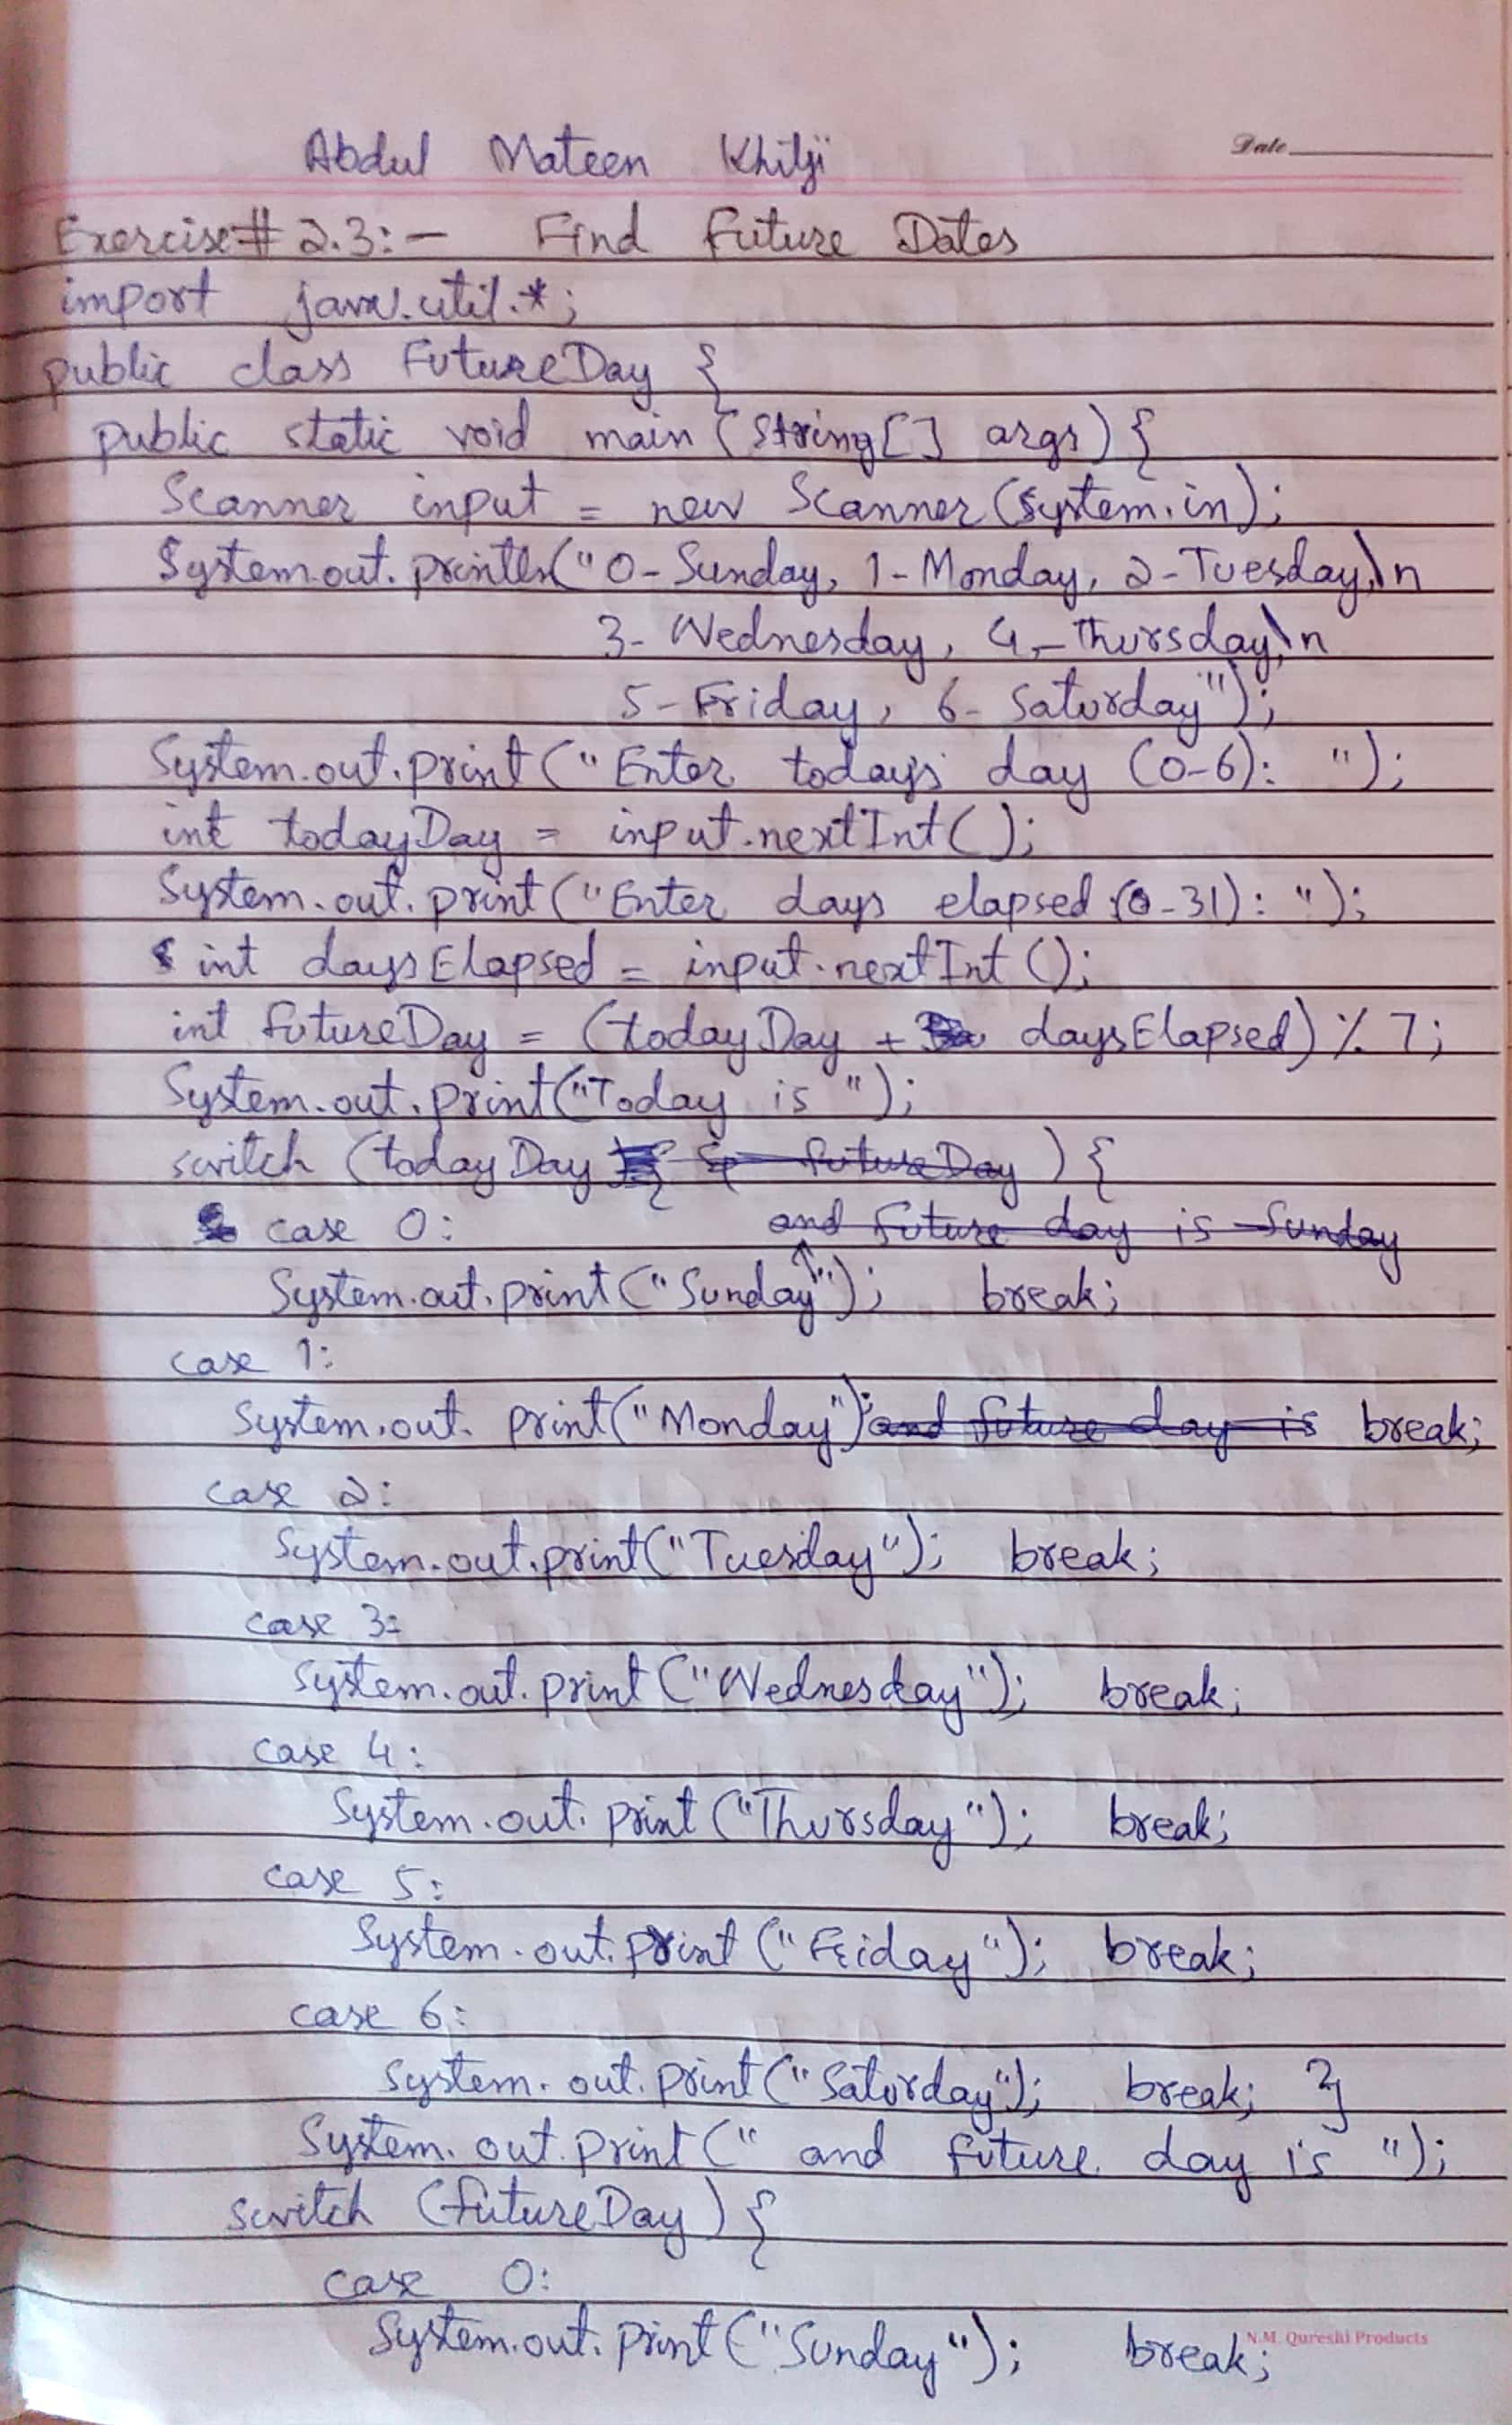 Abdul Mateen Khilji
Date
Exercise# 2.3:- Find Future Dates
import java.util.*;
public class FutureDay {
public static void main (String[] args) {
Scanner input = new Scanner(System.in);
System.out.println("0-Sunday, 1-Monday, 2-Tuesday,\n
3-Wednesday, 4-Thursday,\n
5-Friday, 6-Saturday");
System.out.print("Enter today's day (0-6): ");
int todayDay = input.nextInt();
System.out.print("Enter days elapsed (0-31): ");
int daysElapsed = input.nextInt();
int futureDay = (todayDay + daysElapsed) % 7;
System.out.print("Today is ");
switch (todayDay futureDay ) {
case 0: and future day is Sunday
System.out.print("Sunday"); break;
case 1:
System.out.print("Monday"); and future day is break;
case 2:
System.out.print("Tuesday"); break;
case 3:
System.out.print("Wednesday"); break;
case 4:
System.out.print("Thursday"); break;
case 5:
System.out.print("Friday"); break;
case 6:
System.out.print("Saturday"); break; }
System.out.print(" and future day is ");
switch (futureDay) {
case 0:
System.out.print("Sunday"); break;
N.M. Qureshi Products